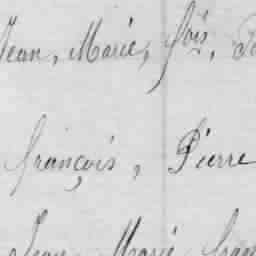 Jean, Marie, fois,
françois, Pierre
Jean Marie fran